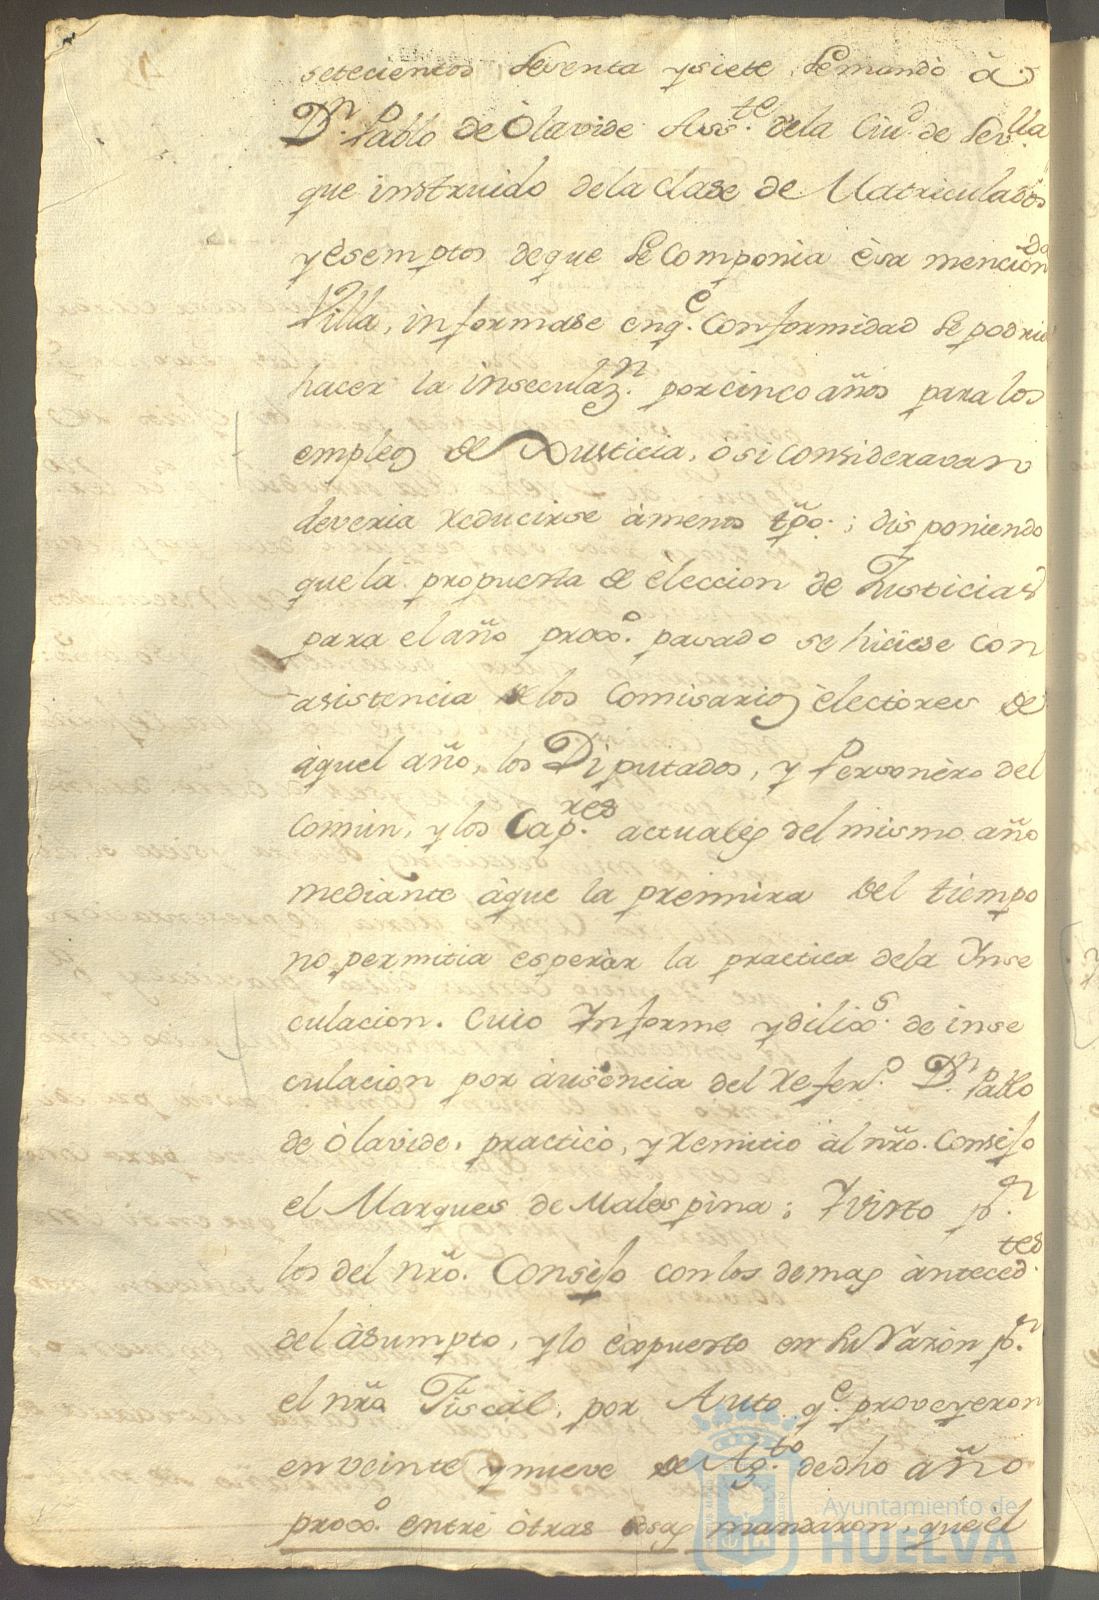 setecientos setenta y siete, se mandò â
Dn. Pablo de Olavide Asste. dela Ciud de Sevlla
que instruido dela Clase de Matriculados
y èsemptos deque se Componia èsa menciondo
Villa, informase enqe. Conformidad se podria
hacer la inseculazn. por cinco años para los
empleos de Justicia, ò si consideravan
deveria reducirse àmenos tpõ.; disponiendo
que la propuesta de èleccion de Justicias
para el año proxo. pasado se hiciese con
asistencia de los Comisarios èlectores de
àquel año, los Diputados, y Personèro del
Comun, y los Capres. actuales del mismo año
mediante àque la premura del tiempo
no permitia esperàr la practica dela Inse
culacion. Cuio Informe y dilixs. de inse
culacion por àusencia del Refero. Dn. Pablo
de Olavide, practicò, y remitio àl nrõ. Consejo
el Marques de Malespina; Y visto pn.
los del nrõ. Consejo con los demas àntecedtes.
del àsumpto, y lo èxpuesto en su Razòn pn.
el nrõ Fiscàl, por Auto qe. proveyeron
en veinte y nueve de Agto. de dho año
proxo. entre òtras cosas mandaron, que èl
Ayuntamiento de
HUELVA